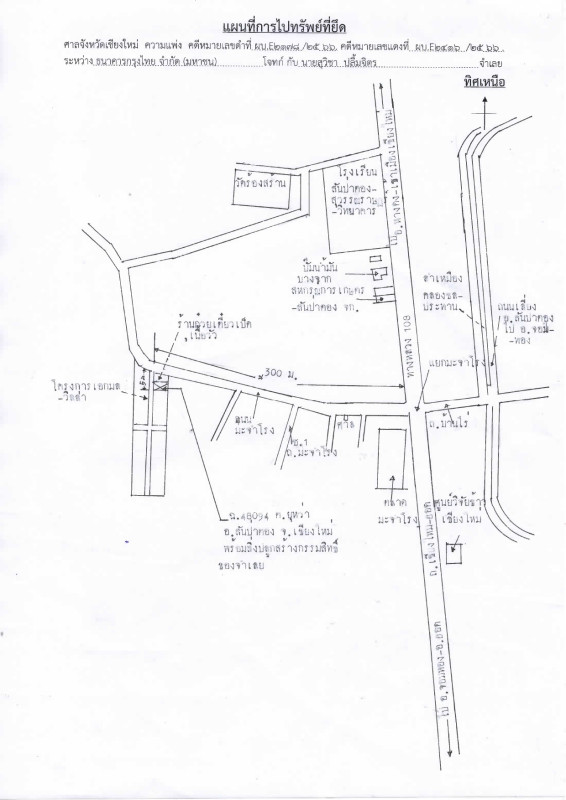 แผนที่การไปทรัพย์ที่ยึด
ศาลจังหวัดเชียงใหม่ ความแพ่ง คดีหมายเลขดำที่ ผบ.E๒๑๗๘ /๒๕๖๖ คดีหมายเลขแดงที่ ผบ.E๒๔๑๖ /๒๕๖๖
ระหว่าง ธนาคารกรุงไทย จำกัด (มหาชน) โจทก์ กับ นายสุวิชา ปลื้มจิตร จำเลย
ทิศเหนือ
ไป อ.หางดง-เข้าเมืองเชียงใหม่
วัดร้องสร้าน
โรงเรียน
สันป่าตอง-
สุวรรณราษฎร์
-วิทยาคาร
ปั๊มน้ำมัน
บางจาก
สหกรณ์การเกษตร
-สันป่าตอง จก.
ลำเหมือง
คลองชล-
ประทาน
ถนนเลี่ยง
อ.สันป่าตอง
ไป อ.จอม-
ทอง
ร้านก๋วยเตี๋ยวเป็ด
,เนื้อวัว
300 ม.
ทางหลวง 108
แยกมะจำโรง
โครงการเอกมล
-วิลล่า
ถนน
มะจำโรง
ซ.1
ถ.มะจำโรง
ถ.บ้านไร่
ตลาด
มะจำโรง
ศูนย์วิจัยข้าว
เชียงใหม่
ถ.เชียงใหม่-ฮอด
ฉ.48094 ต.ยุหว่า
อ.สันป่าตอง จ.เชียงใหม่
พร้อมสิ่งปลูกสร้างกรรมสิทธิ์
ของจำเลย
ไป อ.จอมทอง-อ.ฮอด